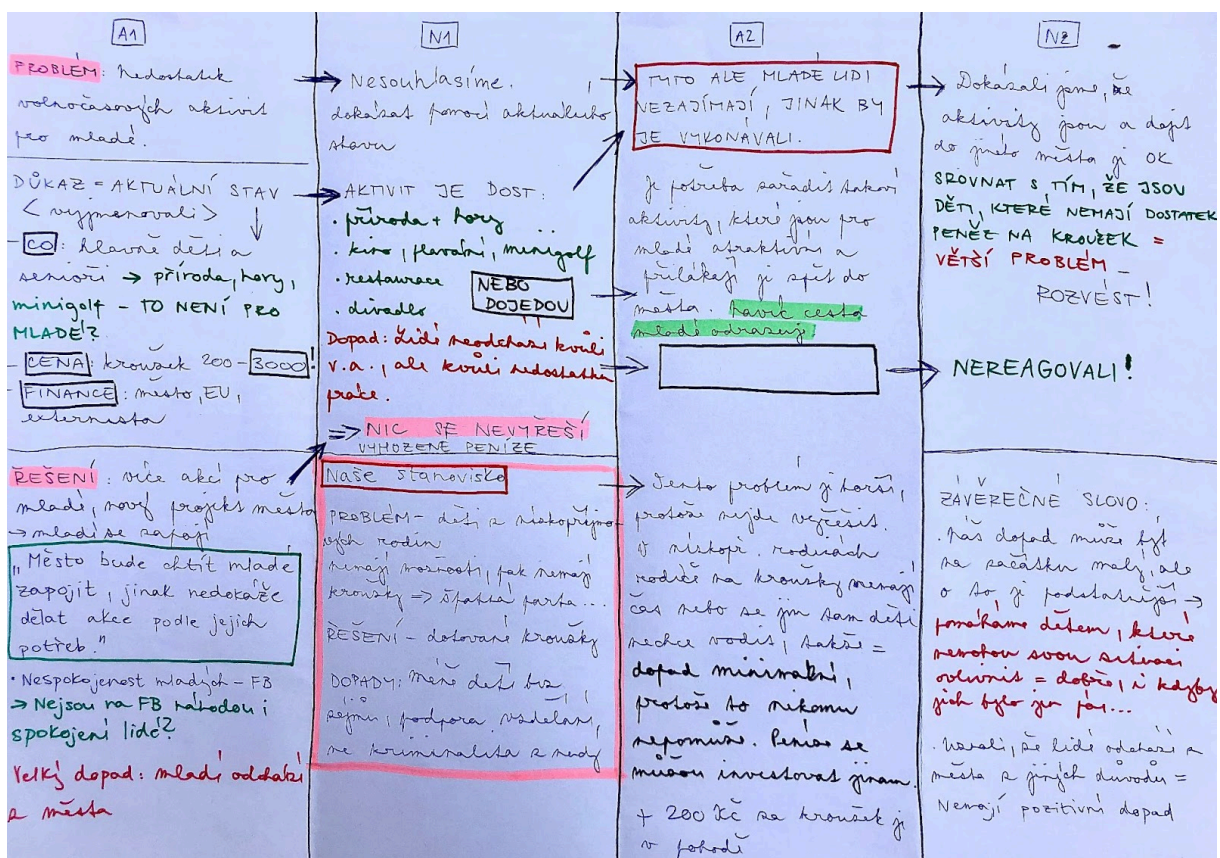 A1
PROBLÉM: Nedostatek
volnočasových aktivit
pro mladé.
DŮKAZ = AKTUÁLNÍ STAV
< vyjmenovali >
- CO: hlavně děti a
senioři → příroda, hory,
minigolf - TO NENÍ PRO
MLADÉ?
- CENA: kroužek 200 - 3000!
- FINANCE: město, EU,
externista
ŘEŠENÍ: více akcí pro
mladé, nový projekt města
→ mladí se zapojí
„Město bude chtít mladé
zapojit, jinak nedokáže
dělat akce podle jejich
potřeb."
• Nespokojenost mladých - FB
→ Nejsou na FB náhodou i
spokojení lidé?
Velký dopad: mladí odchází
z města
N1
Nesouhlasíme.
dokázat pomocí aktuálního
stavu
AKTIVIT JE DOST:
• příroda + hory
• kino, plavání, minigolf
• restaurace
• divadlo
NEBO
DOJEDOU
Dopad: Lidé neodchází kvůli
v.a., ale kvůli nedostatku
práce.
⇒ NIC SE NEVYŘEŠÍ
VYHOZENÉ PENÍZE
Naše stanovisko
PROBLÉM - děti z nízkopříjmo-
vých rodin
nemají možnosti, pak nemají
kroužky ⇒ špatná parta...
ŘEŠENÍ - dotované kroužky
DOPADY: méně dětí bez
zájmu, podpora vzdělání,
ne kriminalita z nudy
A2
TYTO ALE MLADÉ LIDI
NEZAJÍMAJÍ, JINAK BY
JE VYKONÁVALI.
Je potřeba zařadit takové
aktivity, které jsou pro
mladé atraktivní a
přilákají je zpět do
města. Navíc cesta
mladé odrazuje
Tento problém je horší,
protože nejde vyřešit.
V nízkopř. rodinách
rodiče na kroužky nemají
čas nebo se jim tam děti
nechce vodit, takže =
dopad minimální,
protože to nikomu
nepomůže. Peníze se
můžou investovat jinam.
+ 200 Kč za kroužek je
v pohodě
N2
Dokázali jsme, že
aktivity jsou a dojít
do jiného města je OK
SROVNAT S TÍM, ŽE JSOU
DĚTI, KTERÉ NEMAJÍ DOSTATEK
PENĚZ NA KROUŽEK =
VĚTŠÍ PROBLÉM -
ROZVÉST!
NEREAGOVALI!
ZÁVĚREČNÉ SLOVO:
• Náš dopad může být
na začátku malý, ale
o to je podstatnější →
pomáháme dětem, které
nemohou svou situaci
ovlivnit = dobře, i kdyby
jich bylo jen pár...
• Uznali, že lidé odchází z
města z jiných důvodů =
Nemají pozitivní dopad